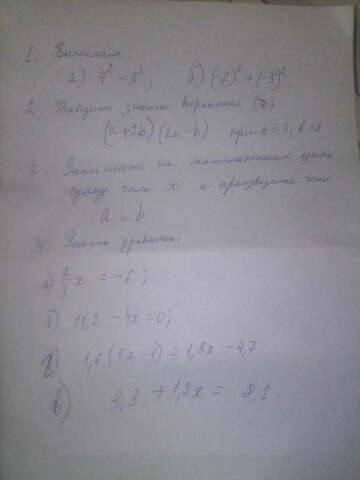 1. Вычислить:
а) 4² - 3³; б) (-2)³ + (-3)²
2. Найдите значение выражения
(a+2b)(2a-b) при a=3, b=8
3. Запишите на математическом языке
сумму числа x и произведение чисел
a и b.
4. Решить уравнения:
x = -6;
б) 11,2 - 4x = 0;
1,6(5x-1) = 1,8x - 4,7
3,3 + 1,2x = 2,1